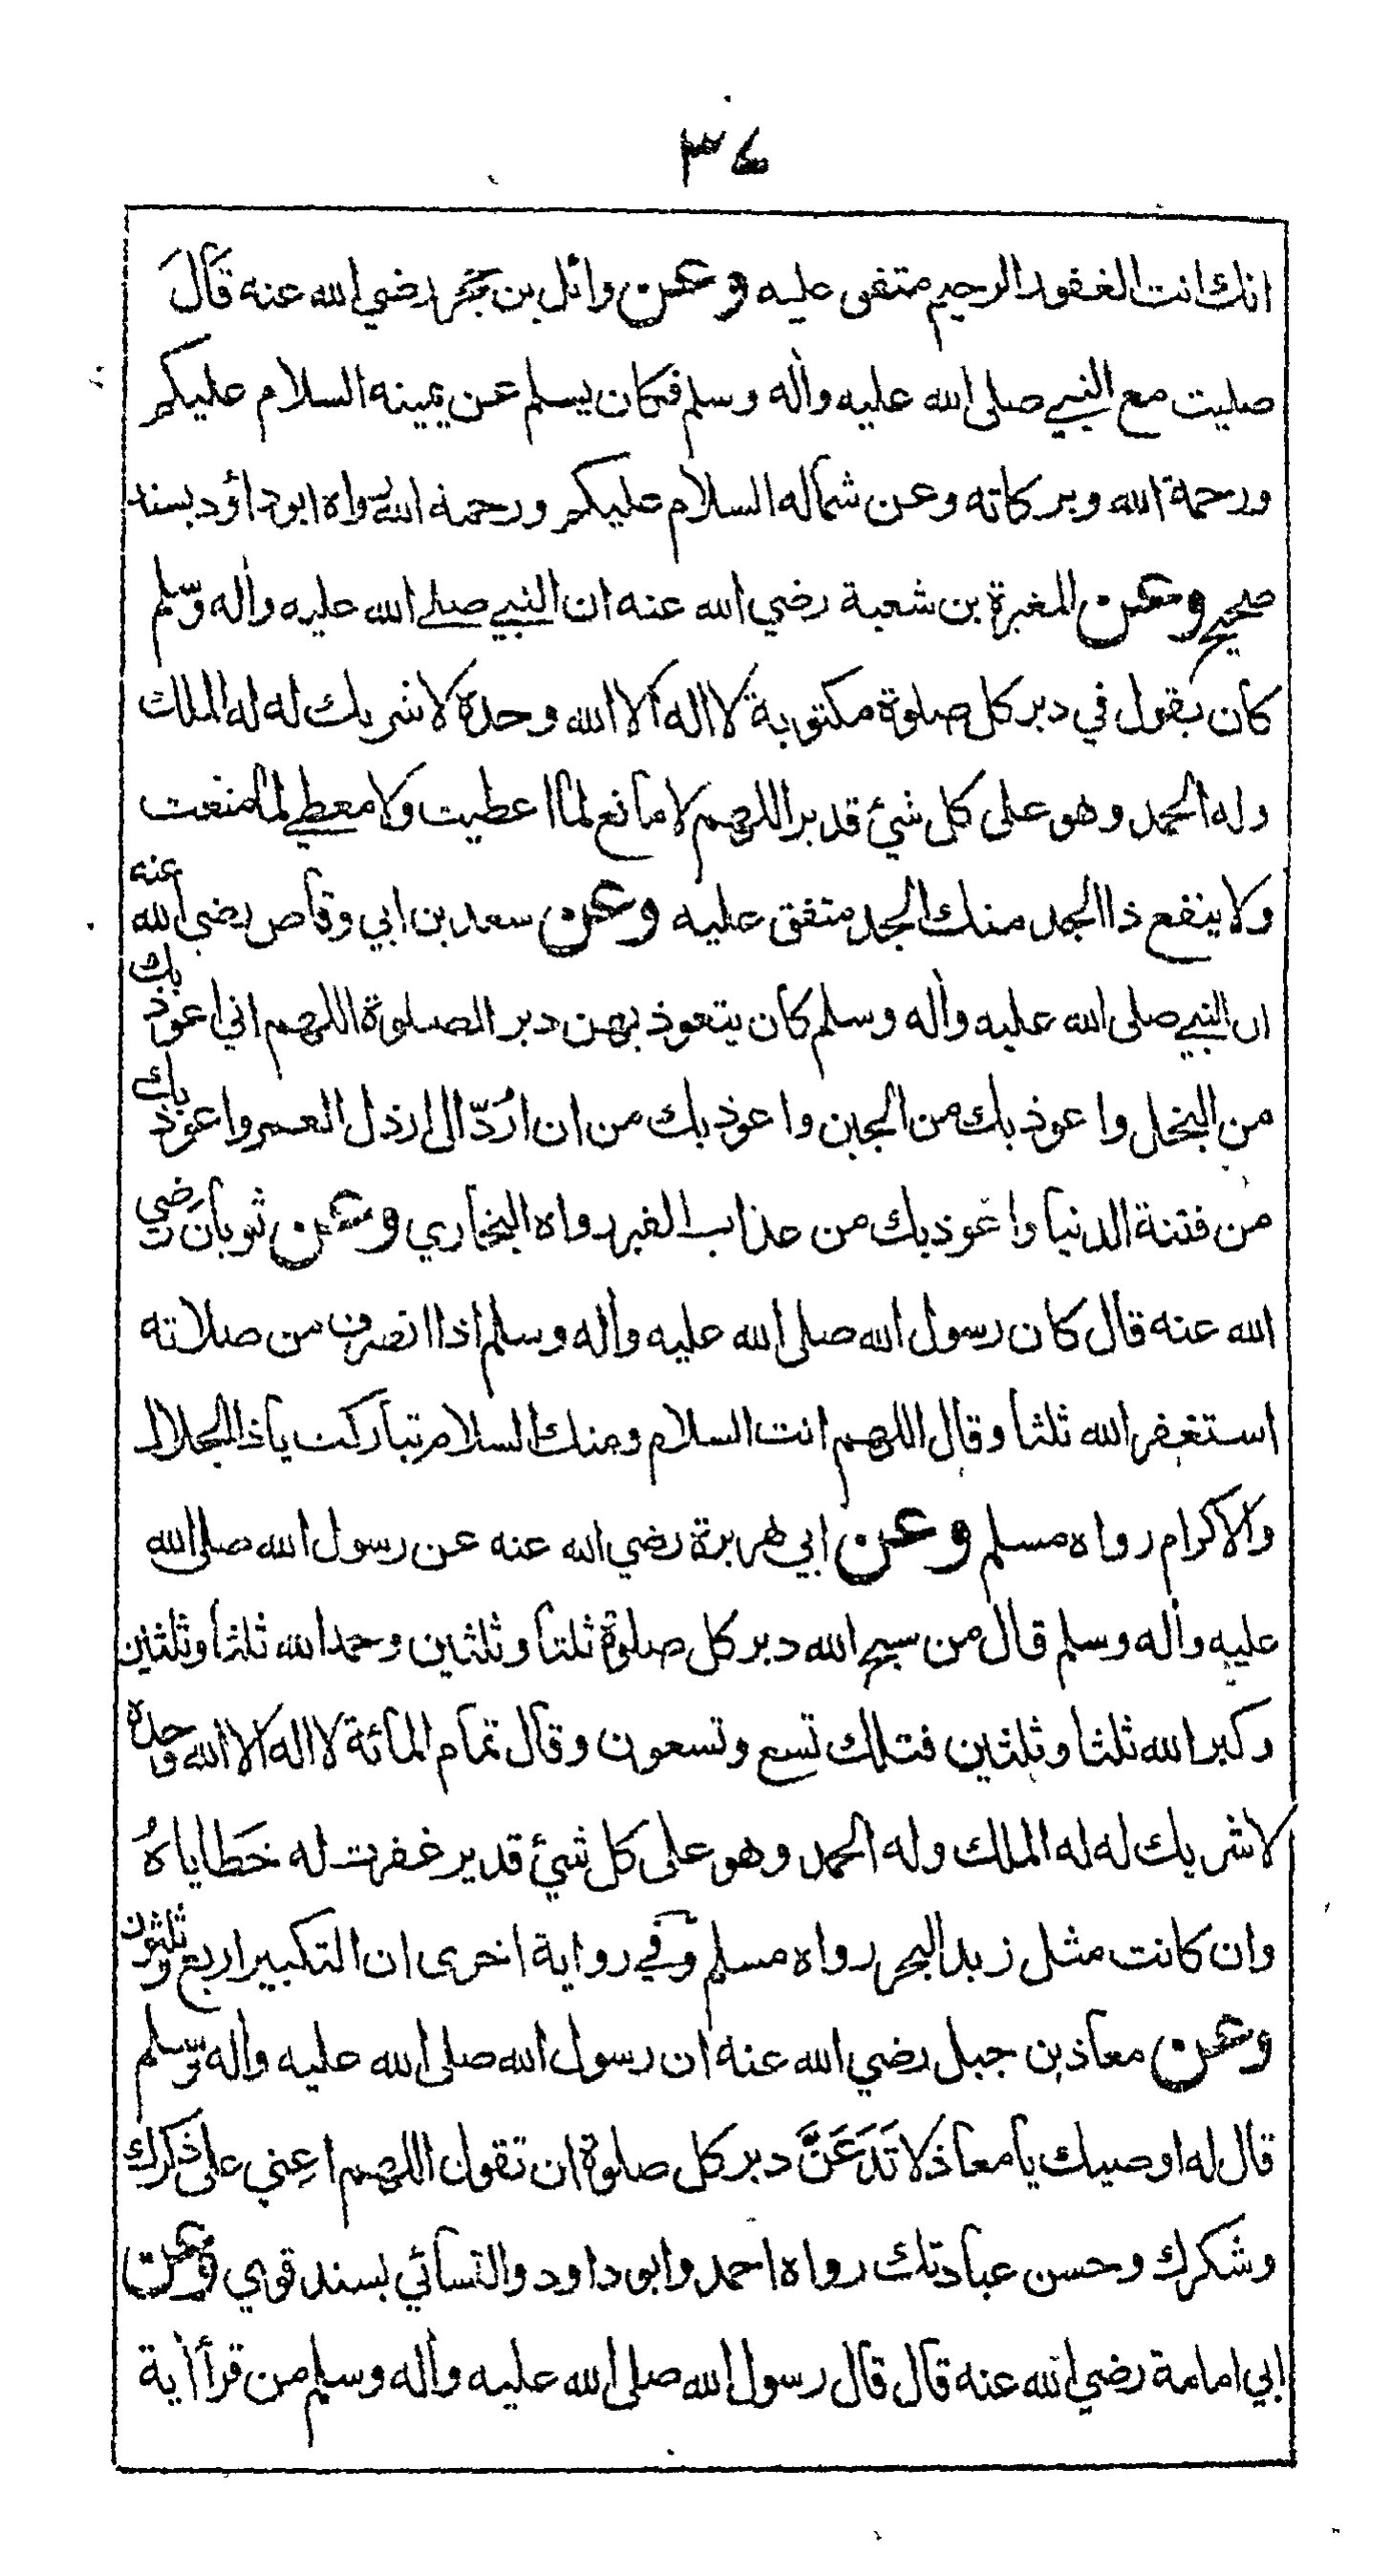 ٣٤
انك انت الغفور الرحيم متفق عليه وعن وائل بن حجر رضي الله عنه قَالَ
صليت مع النبي صلى الله عليه واٰله وسلم فكان يسلم عن يمينه السلام عليكم
ورحمة الله وبركاته وعن شماله السلام عليكم ورحمة الله رواه ابوداؤد بسند
صحيح وعن المغيرة بن شعبة رضي الله عنه ان النبي صلى الله عليه واٰله وسلم
كان يقول في دبر كل صلوة مكتوبة لا اله الا الله وحده لا شريك له له الملك
وله الحمد وهو على كل شئ قدير اللهم لا مانع لما اعطيت ولا معطي لما منعت
ولا ينفع ذا الجد منك الجد متفق عليه وعن سعد بن ابي وقاص رضي الله عنه
ان النبي صلى الله عليه واٰله وسلم كان يتعوذ بهن دبر الصلوة اللهم اني اعوذ بك
من البخل واعوذ بك من الجبن واعوذ بك من ان اُردّ الى ارذل العمر واعوذ بك
من فتنة الدنيا واعوذ بك من عذاب القبر رواه البخاري وعن ثوبان رضي
الله عنه قال كان رسول الله صلى الله عليه واٰله وسلم اذا انصرف من صلاته
استغفر الله ثلثا وقال اللهم انت السلام ومنك السلام تباركت يا ذا الجلال
والاكرام رواه مسلم وعن ابي هريرة رضي الله عنه عن رسول الله صلى الله
عليه واٰله وسلم قال من سبح الله دبر كل صلوة ثلثا وثلثين وحمد الله ثلثا وثلثين
وكبر الله ثلثا وثلثين فتلك تسع وتسعون وقال تمام المائة لا اله الا الله وحده
لا شريك له له الملك وله الحمد وهو على كل شئ قدير غفرت له خَطاياهُ
وان كانت مثل زبد البحر رواه مسلم وفي رواية اخرى ان التكبير اربع وثلثون
وعن معاذ بن جبل رضي الله عنه ان رسول الله صلى الله عليه واٰله وسلم
قال له اوصيك يا معاذ لا تَدَعَنَّ دبر كل صلوة ان تقول اللهم اعِني على ذكرك
وشكرك وحسن عبادتك رواه احمد وابو داود والنسائي بسند قوي وعن
ابي امامة رضي الله عنه قال قال رسول الله صلى الله عليه واٰله وسلم من قرأ اٰية